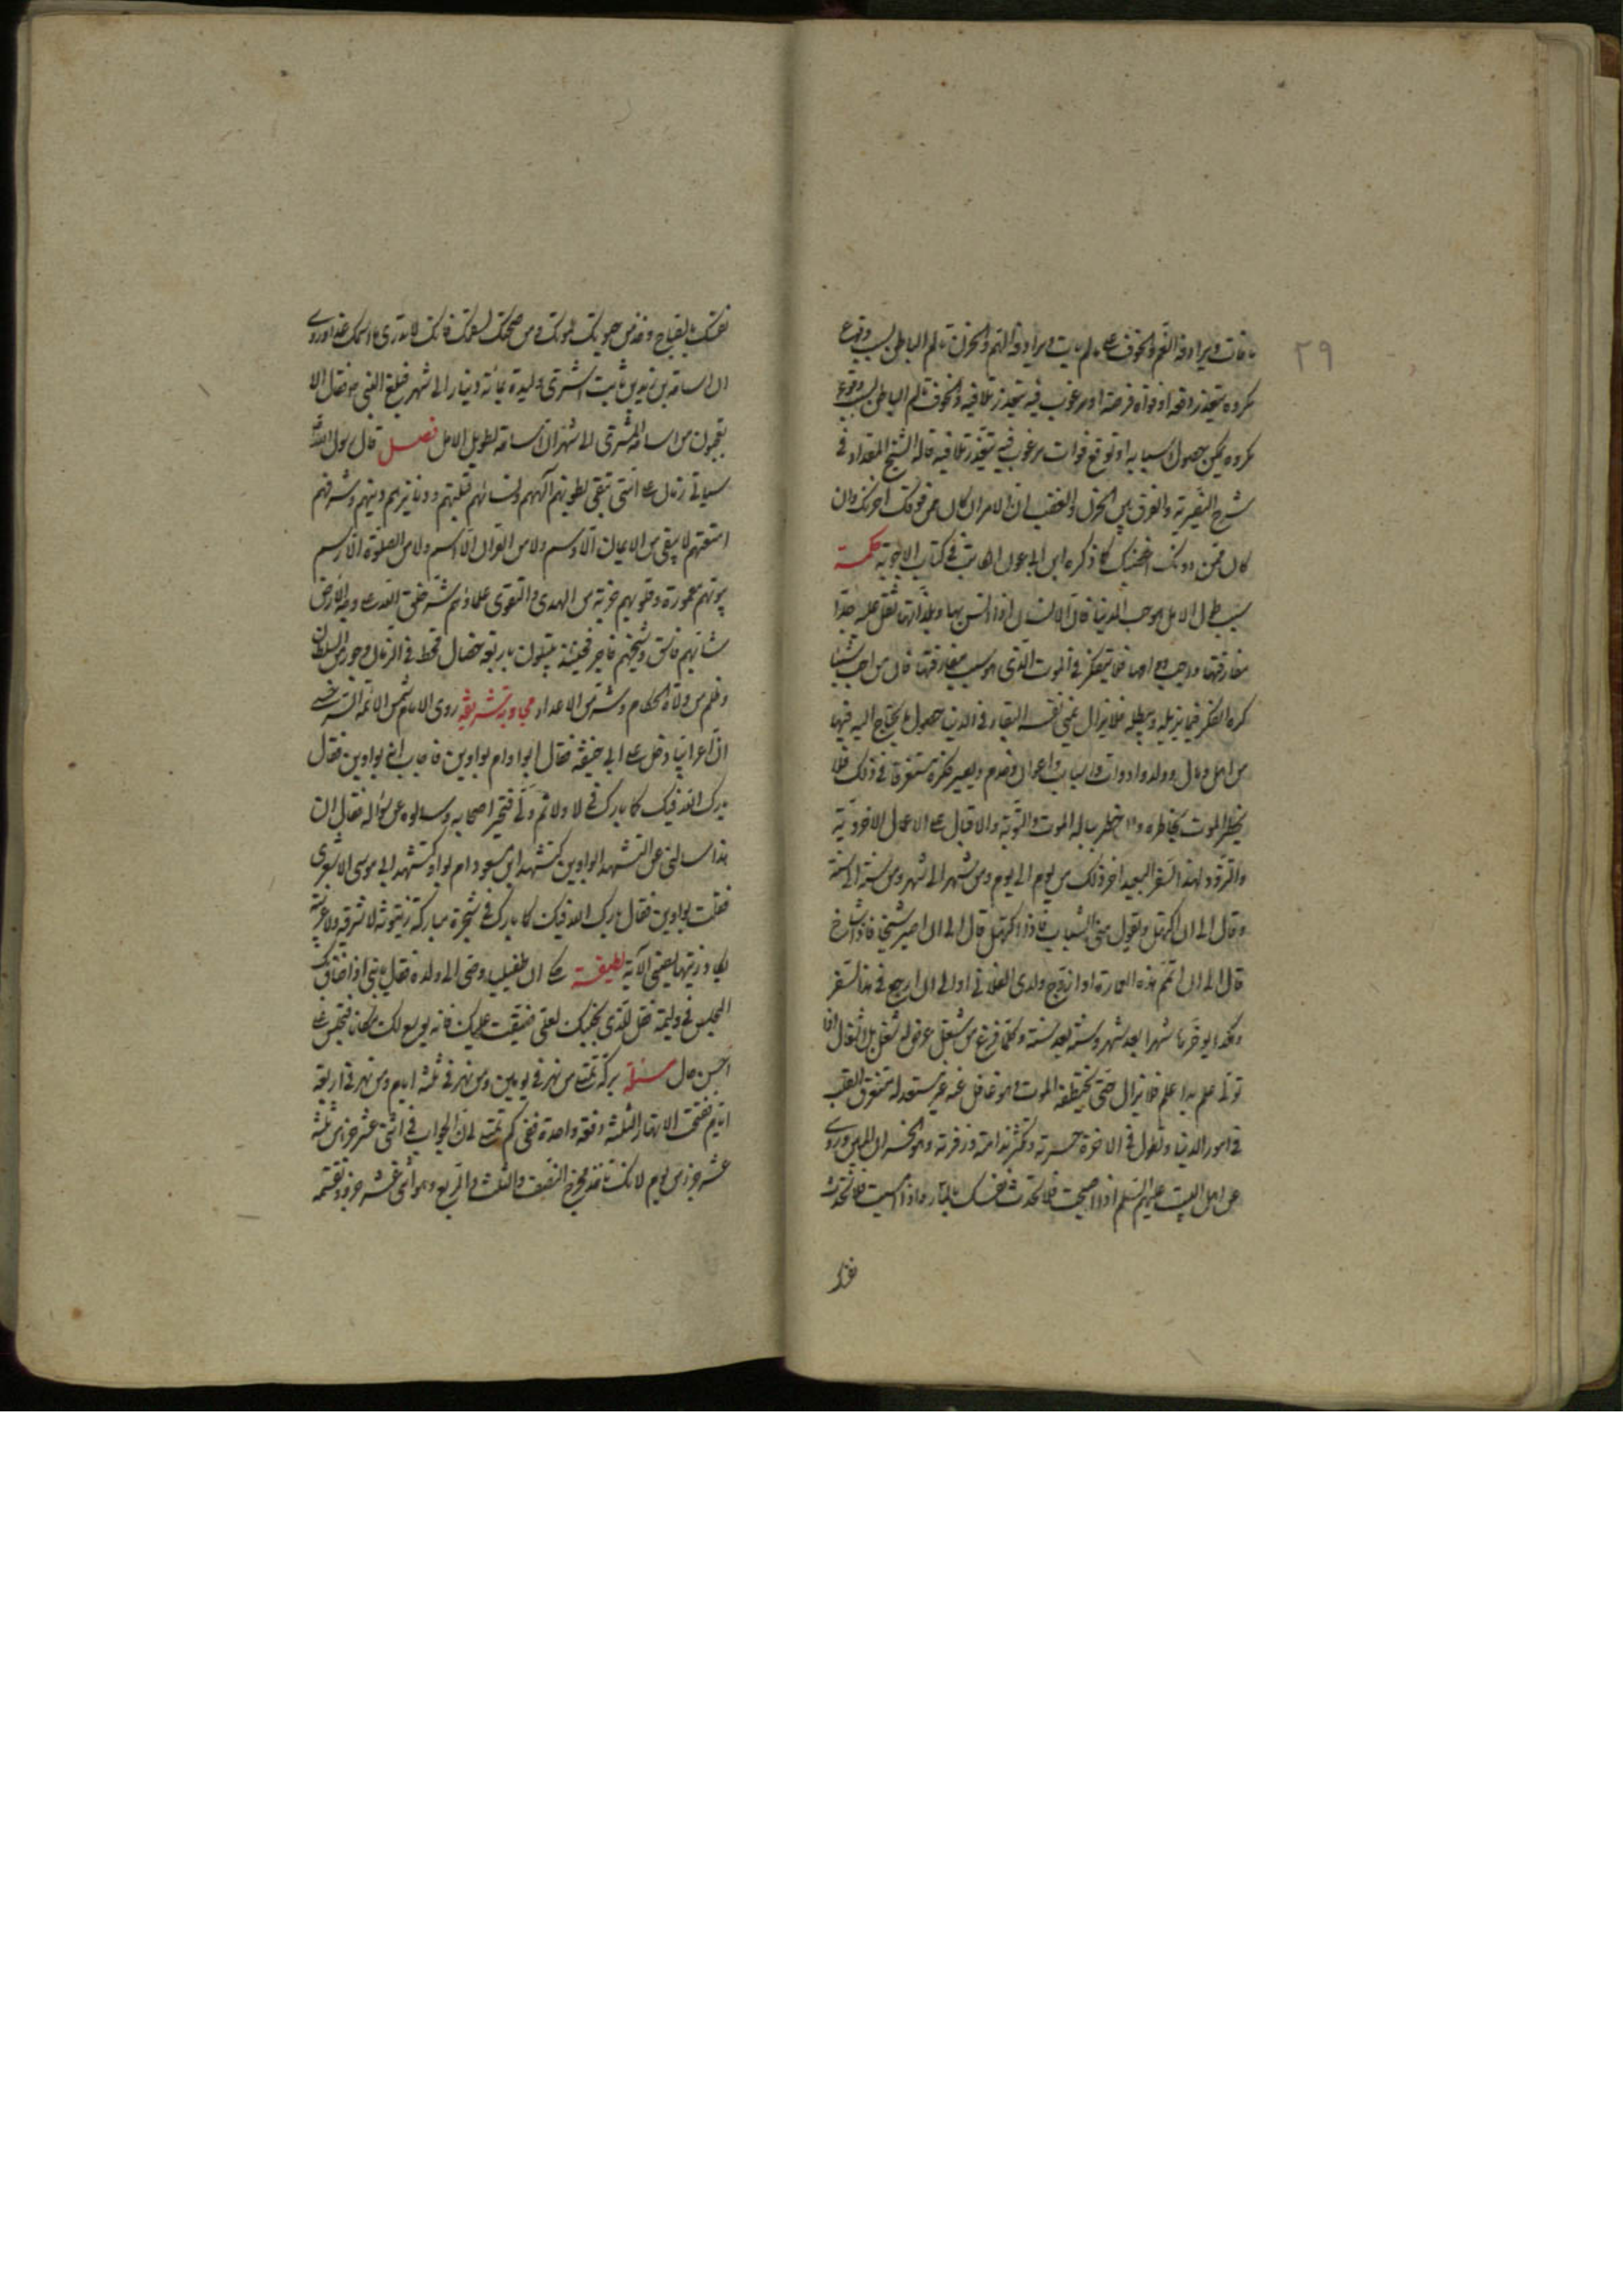 ٢٩
ما فات ويرادفه الغم والخوف على ما لم يات ويرادفه الهم والحزن تالم الباطن بسبب وقوع
مكروه يتعذر دفعه او فواة فرصة او مرغوب فيه يتعذر تلافيه والخوف تالم الباطن بسبب وقوع
مكروه يمكن حصول اسبابه او توقع فوات مرغوب فيه يتعذر تلافيه قاله الشيخ المقداد في
شرح النصيرية والفرق بين الحزن والغضب ان الامر ان كان ممن فوقك احزنك وان
كان ممن دونك اغضبك كما ذكره ابن ابي عون الكاتب في كتاب الاجوبة حكمة
سبب طول الامل هو حب الدنيا فان الانسان اذا انس بها وبلذاتها ثقل عليه جدا
مفارقتها واحب دوامها فلا يتفكر في الموت الذي هو سبب مفارقتها فان من احب شيئا
كره الفكر فيما يزيله ويبطله فلا يزال يمني نفسه البقاء في الدنيا وحصول ما يحتاج اليه فيها
من اهل ومال وولد وادوات واسباب واعوان وخدم ويصير فكره مستغرقا في ذلك فلا
يخطر الموت بخاطره واذا خطر بباله الموت والتوبة والاقبال على الاعمال الاخروية
والتزود لهذا السفر البعيد اخر ذلك من يوم الى يوم ومن شهر الى شهر ومن سنة الى سنة
وقال الى ان اكتهل ويقول معي الشباب فاذا اكتهل قال الى ان اصير شيخا فاذا شاخ
قال الى ان اتم هذه العمارة او ازوج ولدي الفلاني او الى ان ارجع من هذا السفر
وهكذا يؤخر شهرا بعد شهر وسنة بعد سنة وكلما فرغ من شغل عرض له شغل بل اشغال
فلا يزال حتى يختطفه الموت وهو غافل عنه غير مستعد له متفرق القلب
في امور الدنيا وتطول في الاخرة حسرته وتكثر ندامته وزفرته وهو الخسران المبين وروى
عن اهل البيت عليهم السلم اذا اصبحت فلا تحدث نفسك بالمساء واذا امسيت فلا تحدث
نفسك بالصباح وخذ من حيوتك لموتك ومن صحتك لسقمك فانك لا تدري ما اسمك غدا وروى
ان اسامة بن زيد بن ثابت اشترى وليدة بمائة دينار الى شهر فبلغ النبي ص فقال الا
تعجبون من اسامة المشترى الى شهر ان اسامة لطويل الامل فصل قال رسول الله
سياتي زمان على امتي تبقى بطونهم آلهتهم ونساؤهم قبلتهم ودنانيرهم دينهم وشرفهم
امتعتهم لا يبقى من الايمان الا رسم ولا من القران الا اسم ولا من الصلوة الا رسم
بيوتهم معمورة وقلوبهم خربة من الهدى والتقوى علماؤهم شر خلق الله على وجه الارض
شابهم فاسق وشيخهم فاجر فحينئذ يبتلون باربعة خصال قحط في الزمان وجور من السلطان
وظلم من ولاة الحكام وشر من الاعداء مجاوبة شريفة روى الامام شمس الائمة السرخسي
ان اعرابيا دخل على ابي حنيفة فقال ابواو ام بواوين فاجاب اني بواوين فقال
بارك الله فيك كما بارك في لا ولا ثم ولى فتحير اصحابه وسالوه عن سؤاله فقال ان
هذا سالني عن التشهد ابواوين كتشهد ابن مسعود ام بواو كتشهد ابي موسى الاشعري
فقلت بواوين فقال بارك الله فيك كما بارك في شجرة مباركة زيتونة لا شرقية ولا غربية
يكاد زيتها يضيء الآية لطيفة حكي ان طفيليا وصى الى ولده فقال يا بني اذا ضاق بك
المجلس في وليمة فقل للذي بجنبك لعلي ضيقت عليك فانه يوسع لك مكان فتجلس على
احسن حال مسئلة بركة تمتلئ من نهر في يومين ومن نهر في ثلثة ايام ومن نهر في اربعة
ايام ففتحت الانهار الثلثة دفعة واحدة ففي كم تمتلئ الجواب في اثني عشر جزء من ثلثة
عشر جزء من يوم لانك تاخذ مخرج النصف والثلث والربع وهو اثني عشر جزء وتقسمه